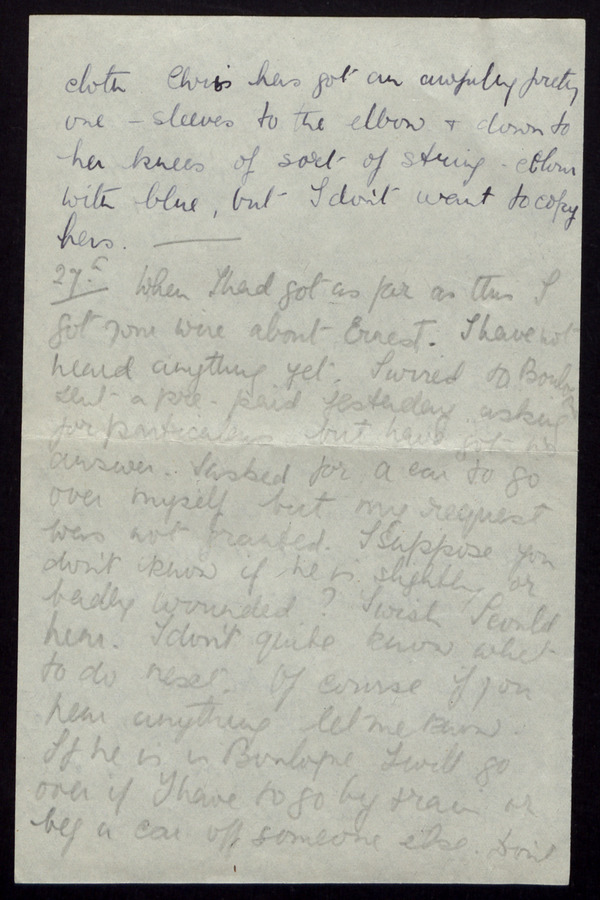 cloth Chris has got an awfully pretty
one - sleeves to the elbow & down to
her knees of sort of string - colour
with blue, but I don't want to copy
hers. —
27th When I had got as far as this I
got your wire about Ernest. I have not
heard anything yet. I wired to Boulogne
sent a pre-paid yesterday asking
for particulars but have got no
answer. I asked for a car to go
over myself but my request
was not granted. I suppose you
don't know if he is slightly or
badly wounded? I wish I could
hear. I don't quite know what
to do next. Of course if you
hear anything let me know.
If he is in Boulogne I will go
over if I have to go by train or
beg a car off someone else. Don't